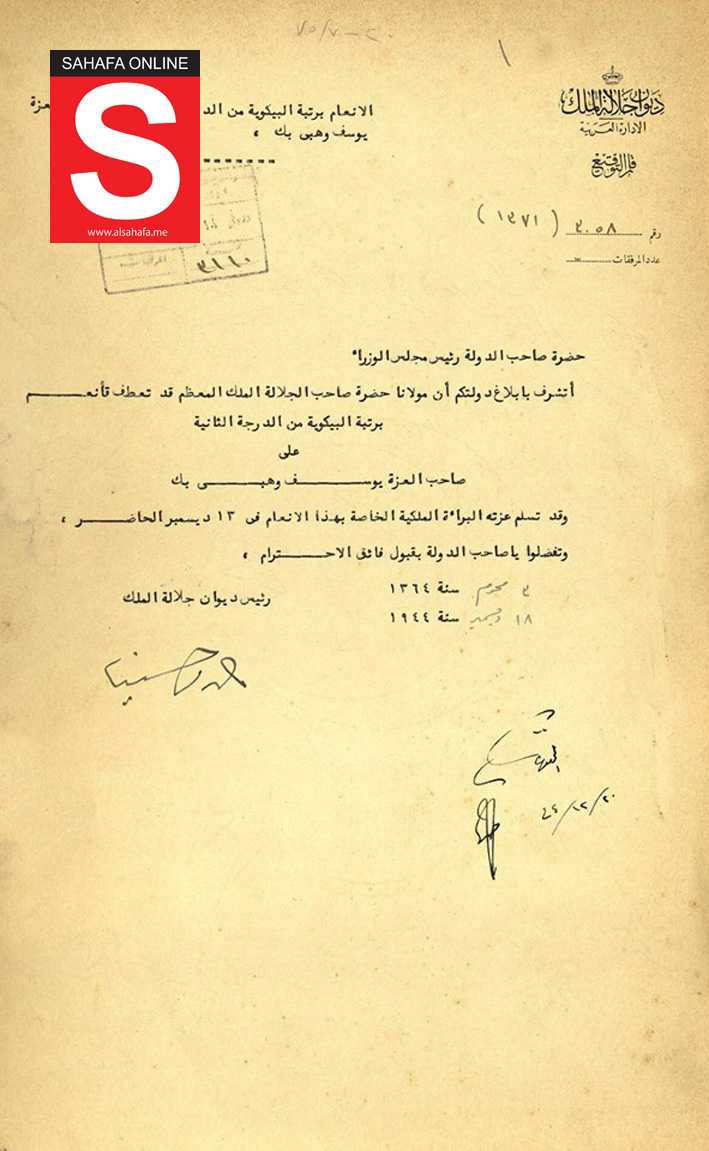 SAHAFA ONLINE
S
www.alsahafa.me
ديوان جلالة الملك
الإدارة العربية
قلم التوقيع
رقم ٣٠٥٨ (١٣٧١)
عدد المرفقات
الانعام برتبة البيكوية من الد
يوسف وهبى بك ،
٣١١٠
المرفقات
حضرة صاحب الدولة رئيس مجلس الوزراء
أتشرف بابلاغ دولتكم أن مولانا حضرة صاحب الجلالة الملك المعظم قد تعطف فأنعم
برتبة البيكوية من الدرجة الثانية
على
صاحب العزة يوسف وهبى بك
وقد تسلم عزته البراءة الملكية الخاصة بهذا الانعام فى ١٣ ديسمبر الحاضر ،
وتفضلوا ياصاحب الدولة بقبول فائق الاحترام ،
٣ محرم سنة ١٣٦٤
١٨ ديسمبر سنة ١٩٤٤
رئيس ديوان جلالة الملك
٢٠/١٢/٤٤